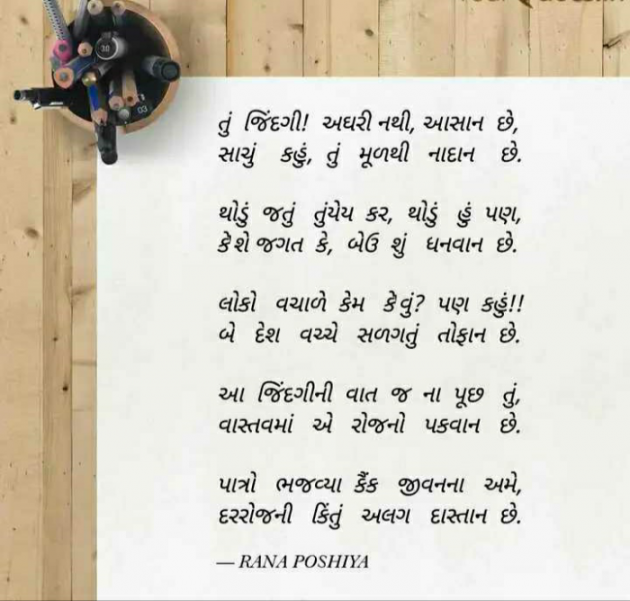 તું જિંદગી! અઘરી નથી, આસાન છે,
સાચું કહું, તું મૂળથી નાદાન છે.
થોડું જતું તુંયેય કર, થોડું હું પણ,
કે'શે જગત કે, બેઉ શું ધનવાન છે.
લોકો વચાળે કેમ કે'વું? પણ કહું!!
બે દેશ વચ્ચે સળગતું તોફાન છે.
આ જિંદગીની વાત જ ના પૂછ તું,
વાસ્તવમાં એ રોજનો પકવાન છે.
પાત્રો ભજવ્યા કૈંક જીવનના અમે,
દરરોજની કિંતું અલગ દાસ્તાન છે.
— RANA POSHIYA